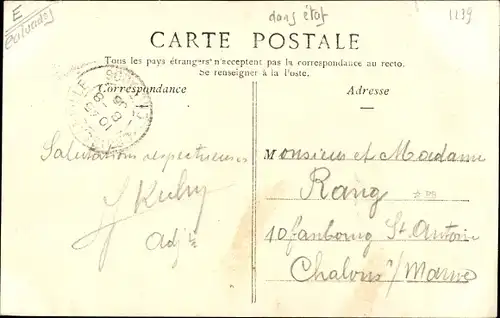 E
Calvados
dans état
1139
CARTE POSTALE
Tous les pays étrangers n'acceptent pas la correspondance au recto.
Se renseigner à la Poste.
Correspondance
Adresse
Salutations respectueuses
Adjt
Monsieur et Madame
Rang
10 faubourg St Antoine
Chalons s/ Marne